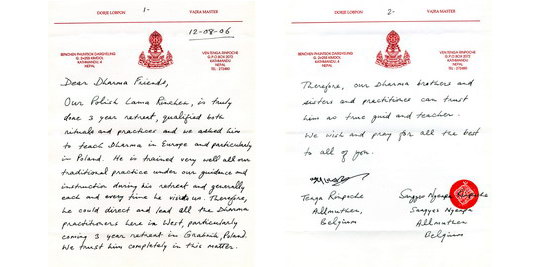 DORJE LOBPON
1-
VAJRA MASTER
12-08-06
BENCHEN PHUNTSOK DARGYELING
KATHMANDU,
NEPAL
VEN.TENGA RINPOCHE
G.P.O BOX 2072
KATHMANDU
NEPAL
Dear Dharma Friends,
Our Polish Lama Rinchen, is truly
done 3 year retreat, qualified both
rituals and practices and we asked him
to teach Dharma in Europe and particularly
in Poland. He is trained very well all our
traditional practice under our guidance and
instruction during his retreat and generally
each and every time he visits us. Therefore,
he could direct and lead all the Dharma
practitioners here in West, particularly
coming 3 year retreat in Grabnik, Poland.
We trust him completely in this matter.
DORJE LOBPON
2-
VAJRA MASTER
BENCHEN PHUNTSOK DARGYELING
KATHMANDU,
NEPAL
VEN.TENGA RINPOCHE
G.P.O BOX 2072
KATHMANDU
NEPAL
Therefore, our Dharma brothers and
sisters and practitioner can trust
him as true guid and teacher.
We wish and pray for all the best
to all of you.
Tenga Rinpoche
Allmuthen,
Belgium
Sangyes Nyenpa Rinpoche
Sangyes Nyenpa
Allmuthen
Belgium